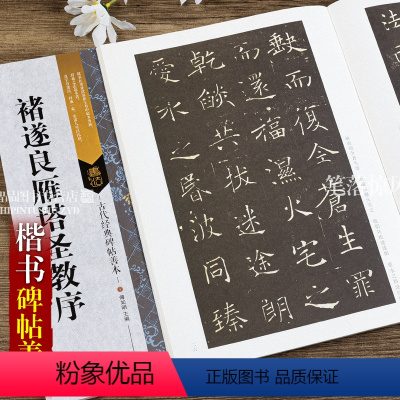 褚遂良雁塔圣教序
古代经典碑帖善本
楷书碑帖善
法
缺而復全蒼生罪
而還福濕火宅之
乾燄共拔迷途朗
愛水之昏波同臻
粉象优品